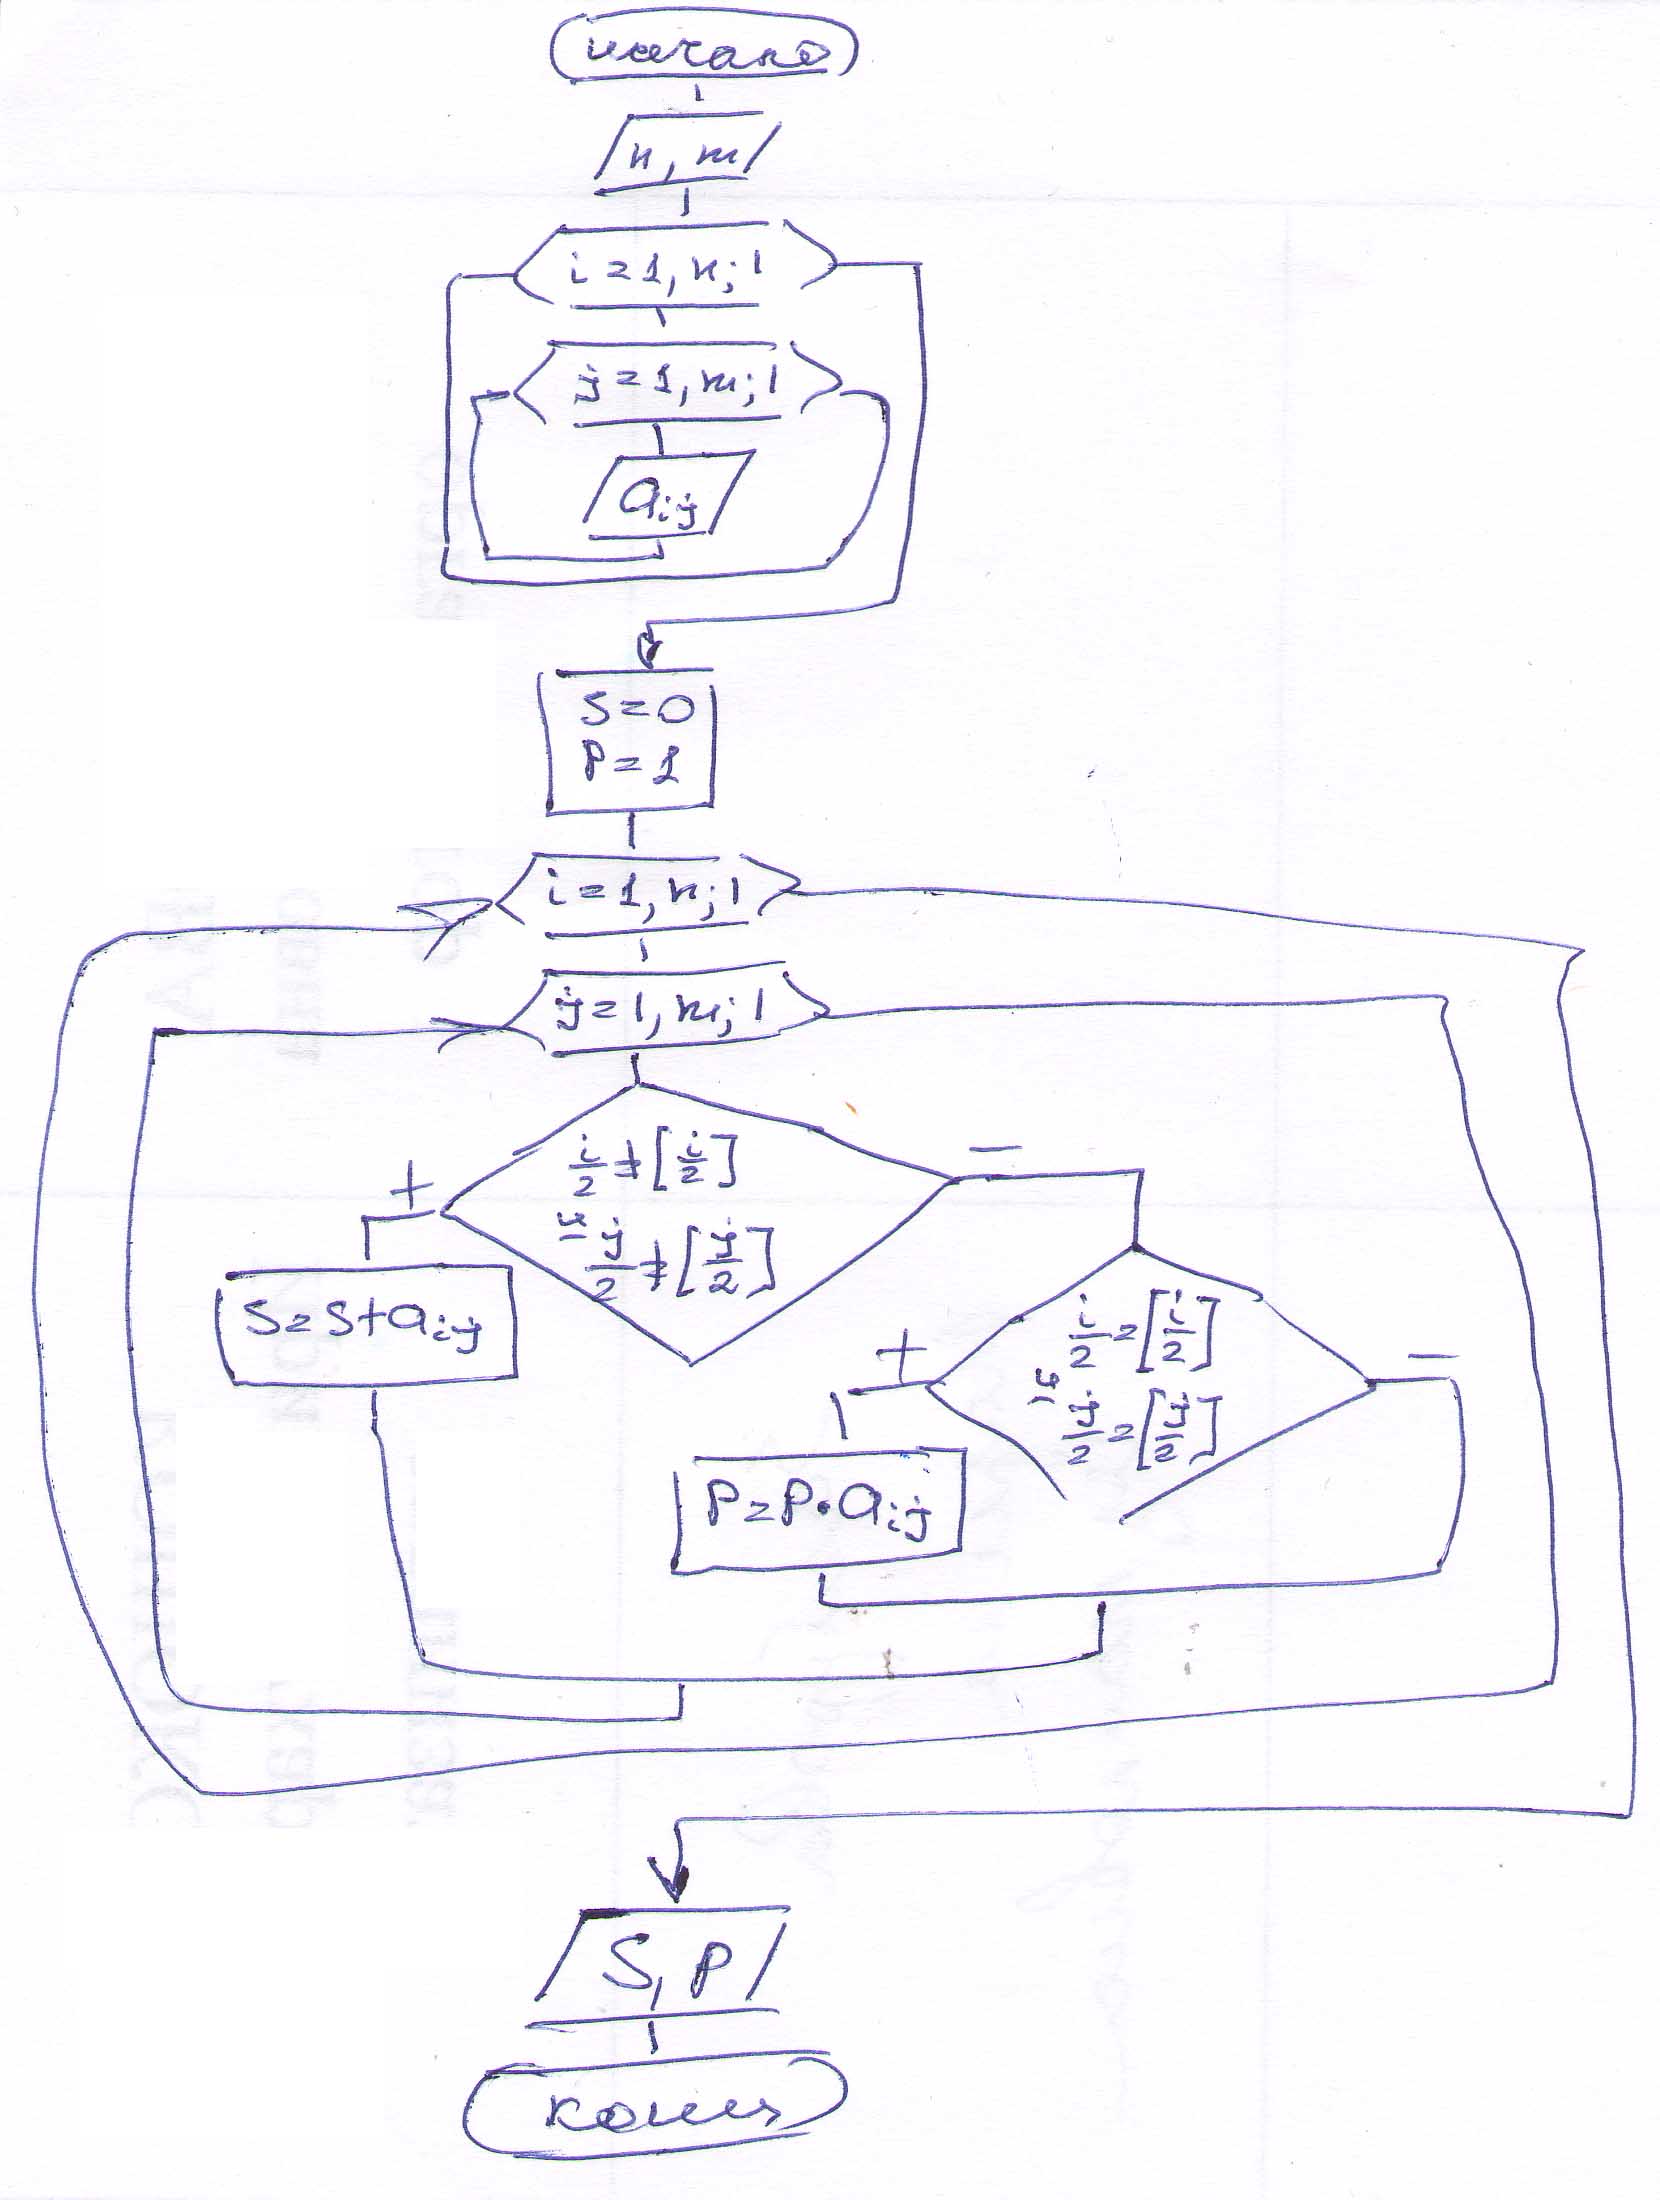 начало
n, m
i=1, n; 1
j=1, m; 1
aij
S=0
P=1
i=1, n; 1
j=1, m; 1
i/2≠[i/2]
и
j/2≠[j/2]
+
−
S=S+aij
i/2=[i/2]
и
j/2=[j/2]
+
−
P=P·aij
S, P
конец